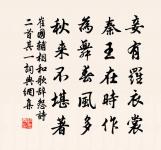 妾有羅衣裳
秦王在時作
為舞春風多
秋来不堪著
崔國輔相和歌辭怨詩
二首其一詞典網集